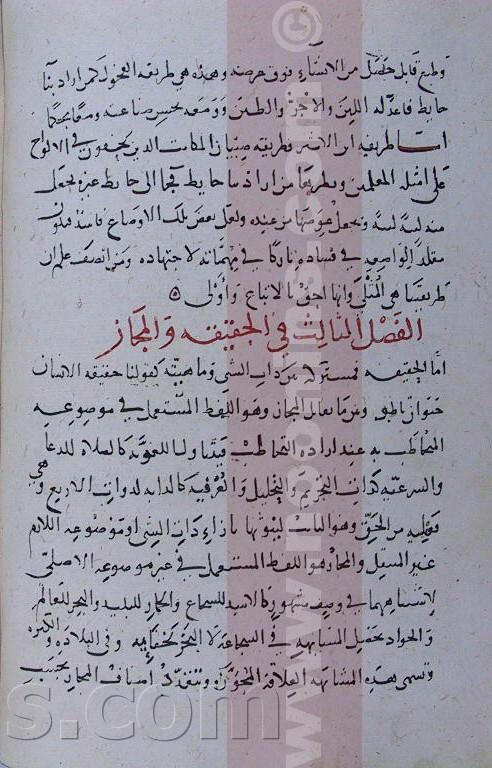 وطبع قابل حصل من الانشاء فوق غرضه وهذه هي طريقة الفحول كمن اراد بنا
حايط فاعد له اللبن والاجر والطين ووضعه بحسن صناعته
طريقة ابن الاثير فطريقة صبيان المكاتب الذين في الالواح
على امثلة المعلمين وطريقها من اراد بنا حايط فجا الى حايط غيره يجعل
منه لبنة لبنة ويجعل عوضها من عنده ولعل بعض تلك الاوضاع فاسد فيكون
مقلدا لواضعه في فساده تاركا في مهماته لاجتهاده ومن انصف علم ان
طريقتنا هي المثلى وانها احق بالاتباع واولى
الفصل الثالث في الحقيقة والمجاز
اما الحقيقة فمشتركة بين ذات الشي وماهيته كقولنا حقيقة الانسان
حيوان ناطق وبين ما يقابل المجاز وهو اللفظ المستعمل في موضوعه
المخاطب به عند ارادة التخاطب فيتناول اللغوية كالصلاة للدعا
والشرعية كذات التحريم والتحليل والعرفية كالدابة لذوات الاربع وهي
فعيلة من الحق وهو الثابت لثبوتها بازاء ذات الشي او موضوعه اللازم
غير المنتقل والمجاز هو اللفظ المستعمل في غير موضوعه الاصلي
لاشتباههما في وصف مشهور كالاسد للشجاع والحمار للبليد والبحر للعالم
والجواد بحصل المشابهة في الشجاعة لا البخر لخفايه وفي البلادة والكثرة
وتسمى هذه المشابهة العلاقة المجوزة وتتعدد اصناف المجاز بحسب
www.noor1ms.com
s.com